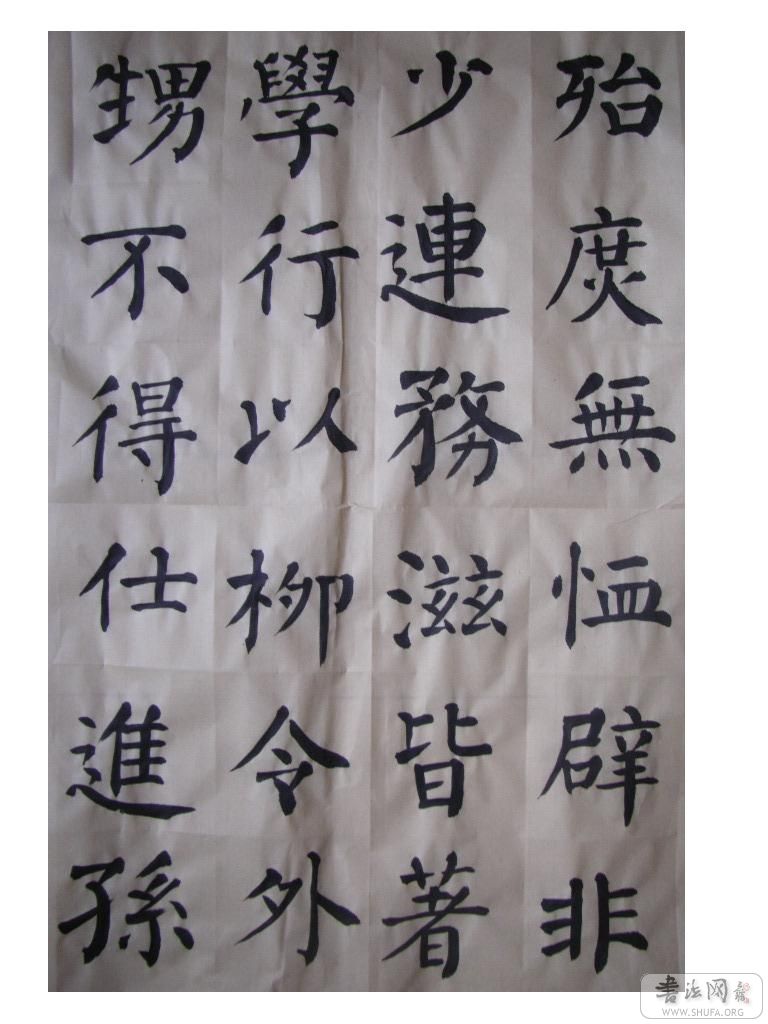 殆庶無恤辟非
少連務滋皆著
學行以柳令外
甥不得仕進孫
書法网
WWW.SHUFA.ORG